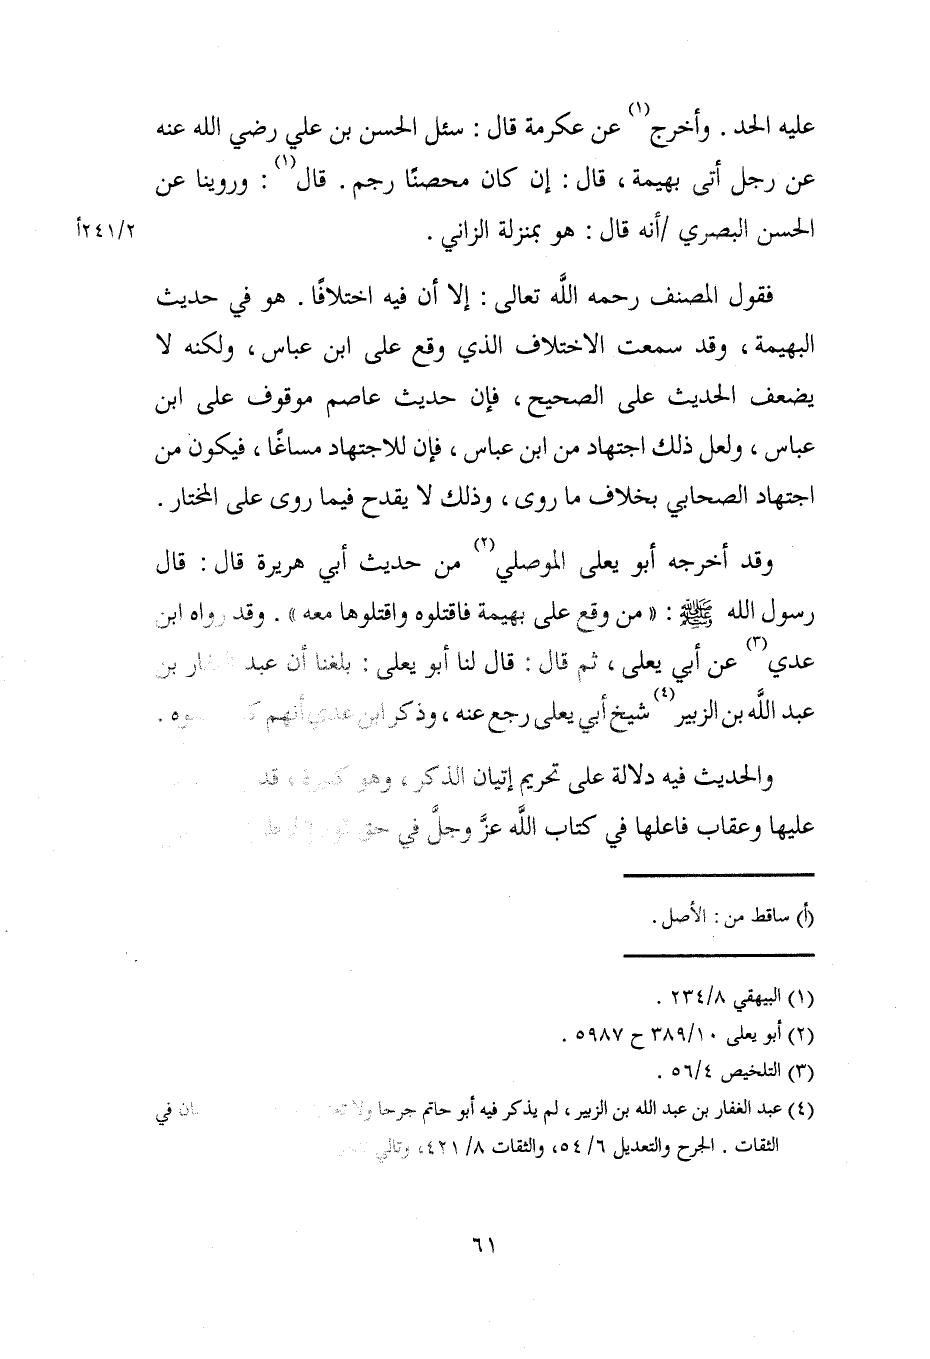 عليه الحد . وأخرج(١) عن عكرمة قال : سئل الحسن بن علي رضي الله عنه
عن رجل أتى بهيمة ، قال : إن كان محصنًا رجم . قال(١) : وروينا عن
الحسن البصري /أنه قال : هو بمنزلة الزاني . ٢٤١/٢أ
فقول المصنف رحمه اللَّه تعالى : إلا أن فيه اختلافًا . هو في حديث
البهيمة ، وقد سمعت الاختلاف الذي وقع على ابن عباس ، ولكنه لا
يضعف الحديث على الصحيح ، فإن حديث عاصم موقوف على ابن
عباس ، ولعل ذلك اجتهاد من ابن عباس ، فإن للاجتهاد مساغًا ، فيكون من
اجتهاد الصحابي بخلاف ما روى ، وذلك لا يقدح فيما روى على المختار .
وقد أخرجه أبو يعلى الموصلي(٢) من حديث أبي هريرة قال : قال
رسول الله ﷺ : « من وقع على بهيمة فاقتلوه واقتلوها معه » . وقد رواه ابن
عدي(٣) عن أبي يعلى ، ثم قال : قال لنا أبو يعلى : بلغنا أن عبد الغفار بن
عبد اللَّه بن الزبير(٤) شيخ أبي يعلى رجع عنه ، وذكر ابن عدي أنهم
والحديث فيه دلالة على تحريم إتيان الذكر ، وهو كبيرة ، قد
عليها وعقاب فاعلها في كتاب اللَّه عزَّ وجلَّ في حق قوم
(أ) ساقط من : الأصل .
(١) البيهقي ٢٣٤/٨ .
(٢) أبو يعلى ٣٨٩/١٠ ح ٥٩٨٧ .
(٣) التلخيص ٥٦/٤ .
(٤) عبد الغفار بن عبد الله بن الزبير ، لم يذكر فيه أبو حاتم جرحا ولا في
الثقات . الجرح والتعديل ٥٤/٦، والثقات ٤٢١/٨، وتالي
٦١